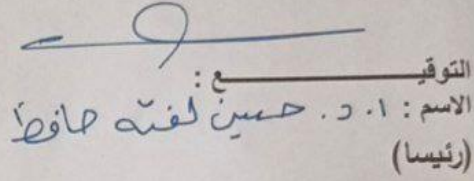 التوقيـــــــــع :
الاسم : ا. د. حسين لفته حافظ
(رئيسا)